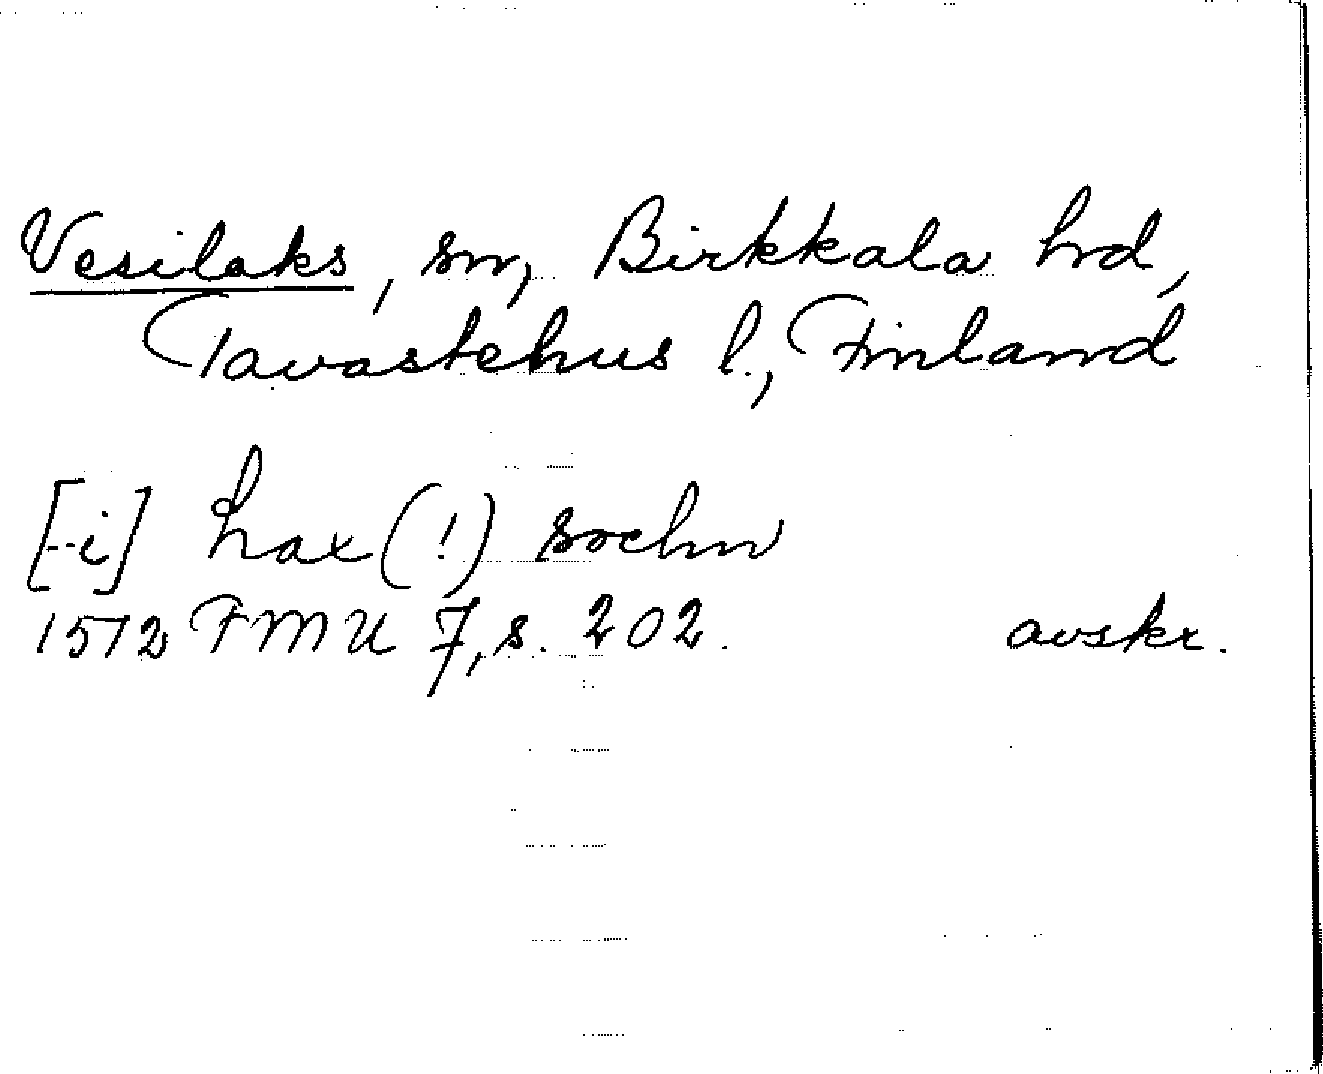 Vesilaks, sn, Birkkala hrd,
Tavastehus l., Finland
[-i] hax(!) sochn
1512 FMU 7, s. 202. avskr.